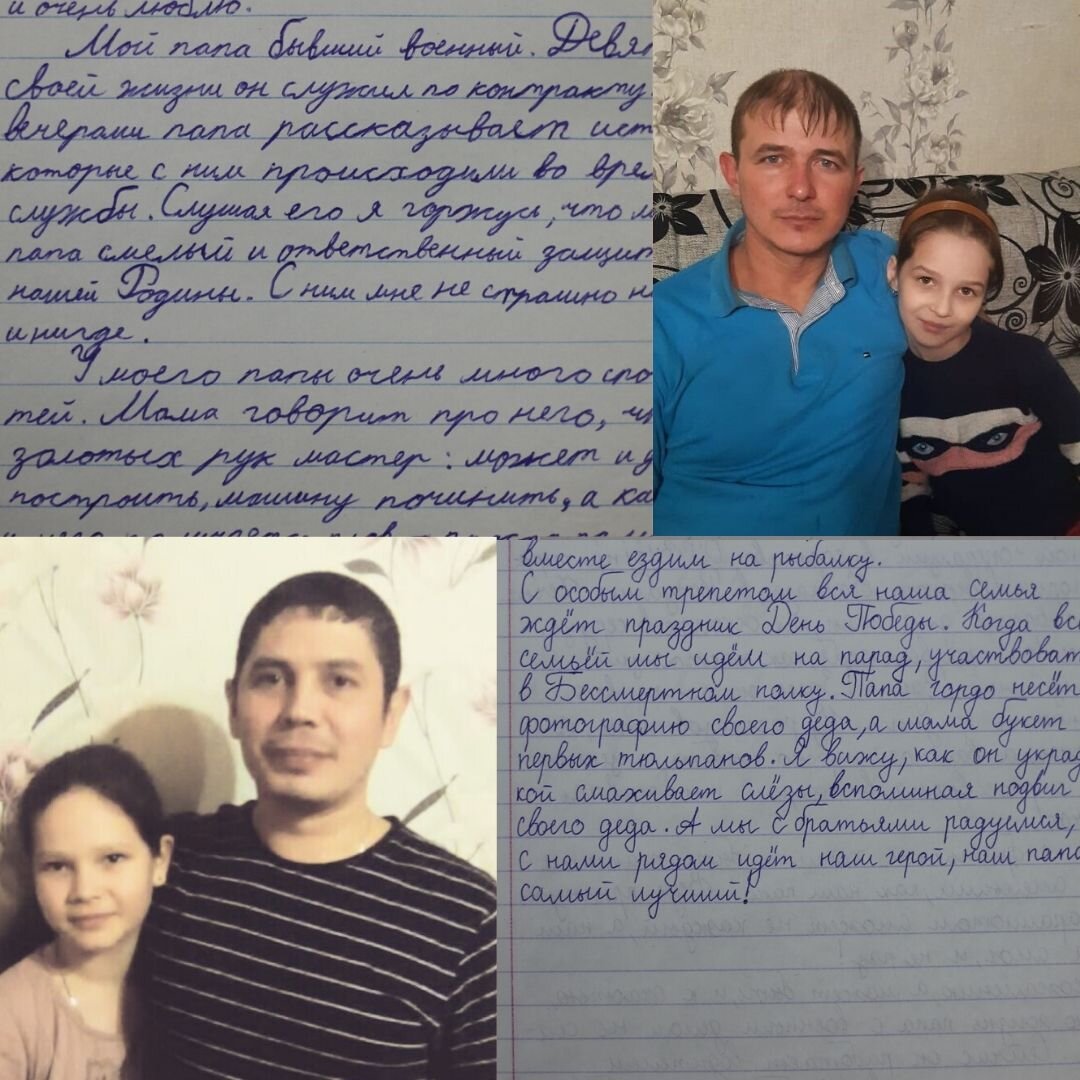 и очень люблю.
Мой папа бывший военный. Девя
своей жизни он служил по контракту
вечерами папа рассказывает ист
которые с ним происходили во врем
службы. Слушая его я горжусь, что м
папа смелый и ответственный защит
нашей Родины. С ним мне не страшно н
и нигде.
У моего папы очень много спо
тей. Мама говорит про него, ч
золотых рук мастер: может и д
построить, машину починить, а ка
вместе ездим на рыбалку.
С особым трепетом вся наша семья
ждёт праздник День Победы. Когда вс
семьёй мы идём на парад, участвоват
в Бессмертном полку. Папа гордо несёт
фотографию своего деда, а мама букет
первых тюльпанов. Я вижу, как он украд
кой смахивает слёзы, вспоминая подвиг
своего деда. А мы с братьями радуемся,
с нами рядом идёт наш герой, наш папа
самый лучший!